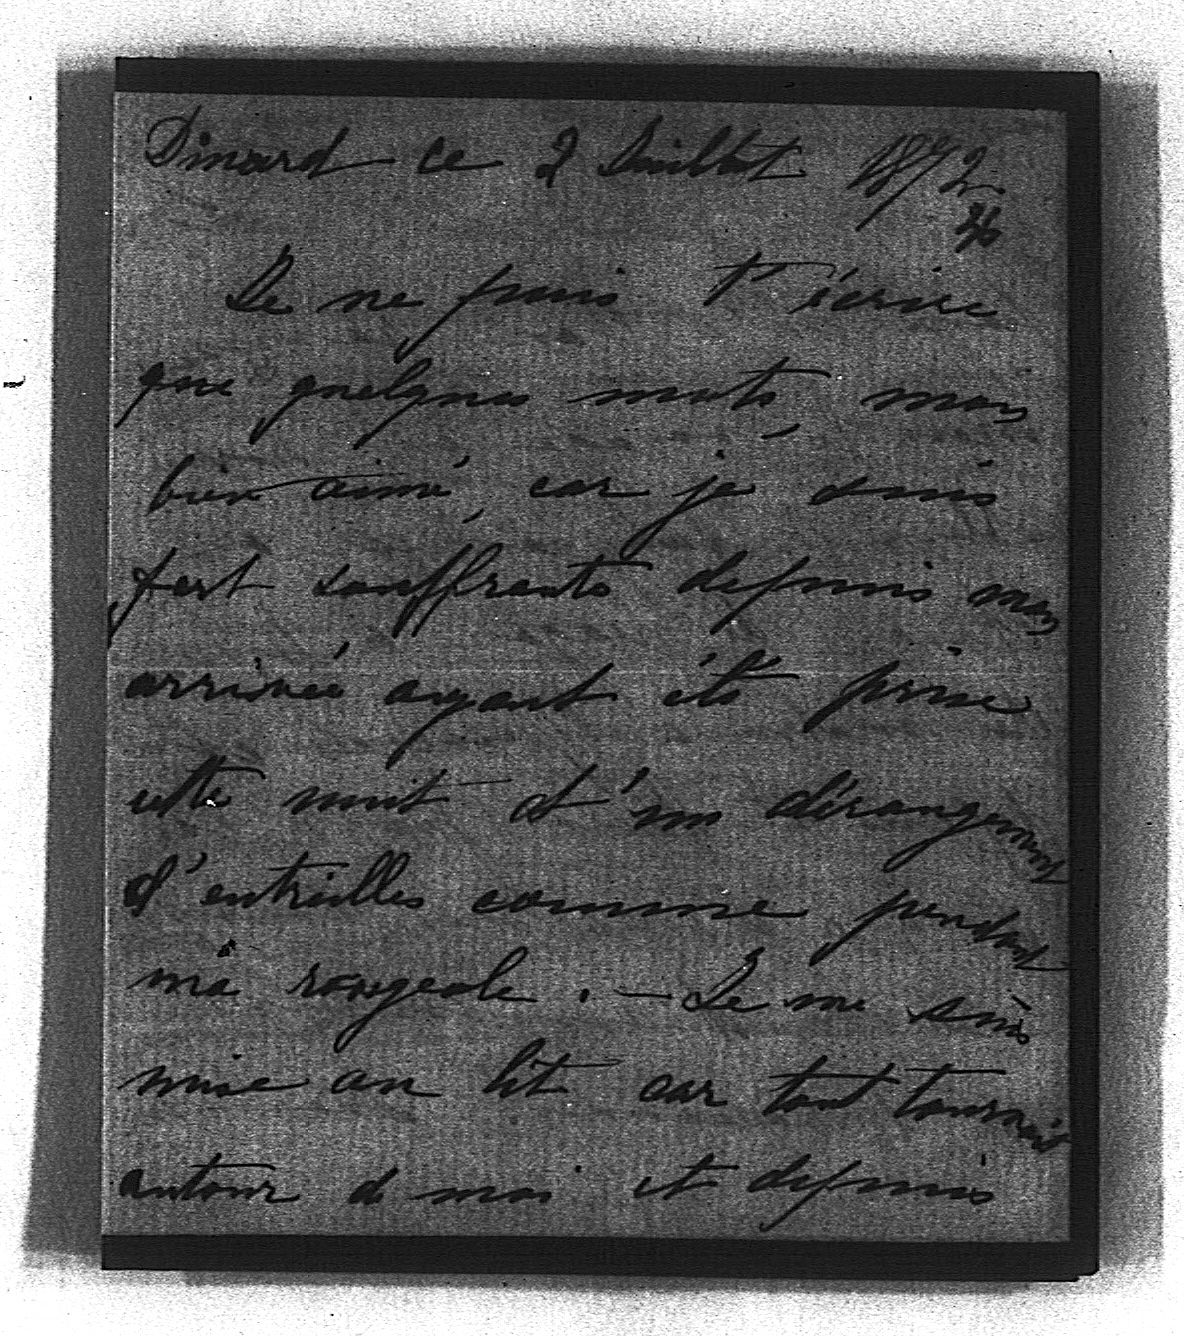 Dinard ce 2 Juillet 1872
26
Je ne puis t'écrire
que quelques mots, mon
bien aimé, car je suis
fort souffrante depuis mon
arrivée ayant été prise
cette nuit d'un dérangement
d'entrailles comme pendant
ma rougeole. — Je me suis
mise au lit car tout tournait
autour d moi et depuis